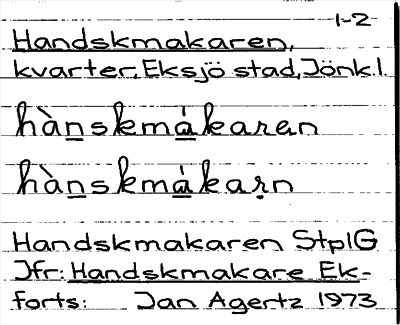 1-2
Handskmakaren,
kvarter, Eksjö stad, Jönk.l.
hàn̲skmá̲karen
hàn̲skmá̲kaṛn
Handskmakaren StplG
Jfr: Handskmakare Ek-
forts: Jan Agertz 1973